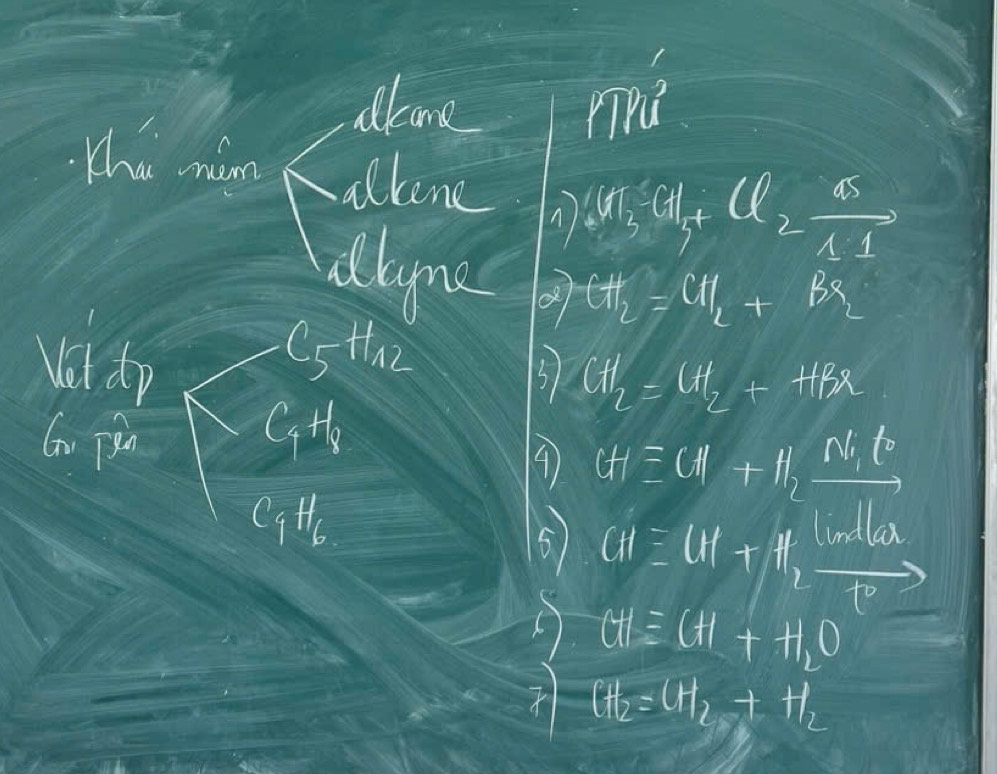 . Khái niệm
alkane
alkene
alkyne
Viết đp
Gọi tên
C5H12
C4H8
C4H6
PTPỨ
1) CH3-CH3 + Cl2 as 1:1
2) CH2 = CH2 + Br2
3) CH2 = CH2 + HBr
4) CH ≡ CH + H2 Ni, to
5) CH ≡ CH + H2 lindlar to
6) CH ≡ CH + H2O
7) CH2 = CH2 + H2